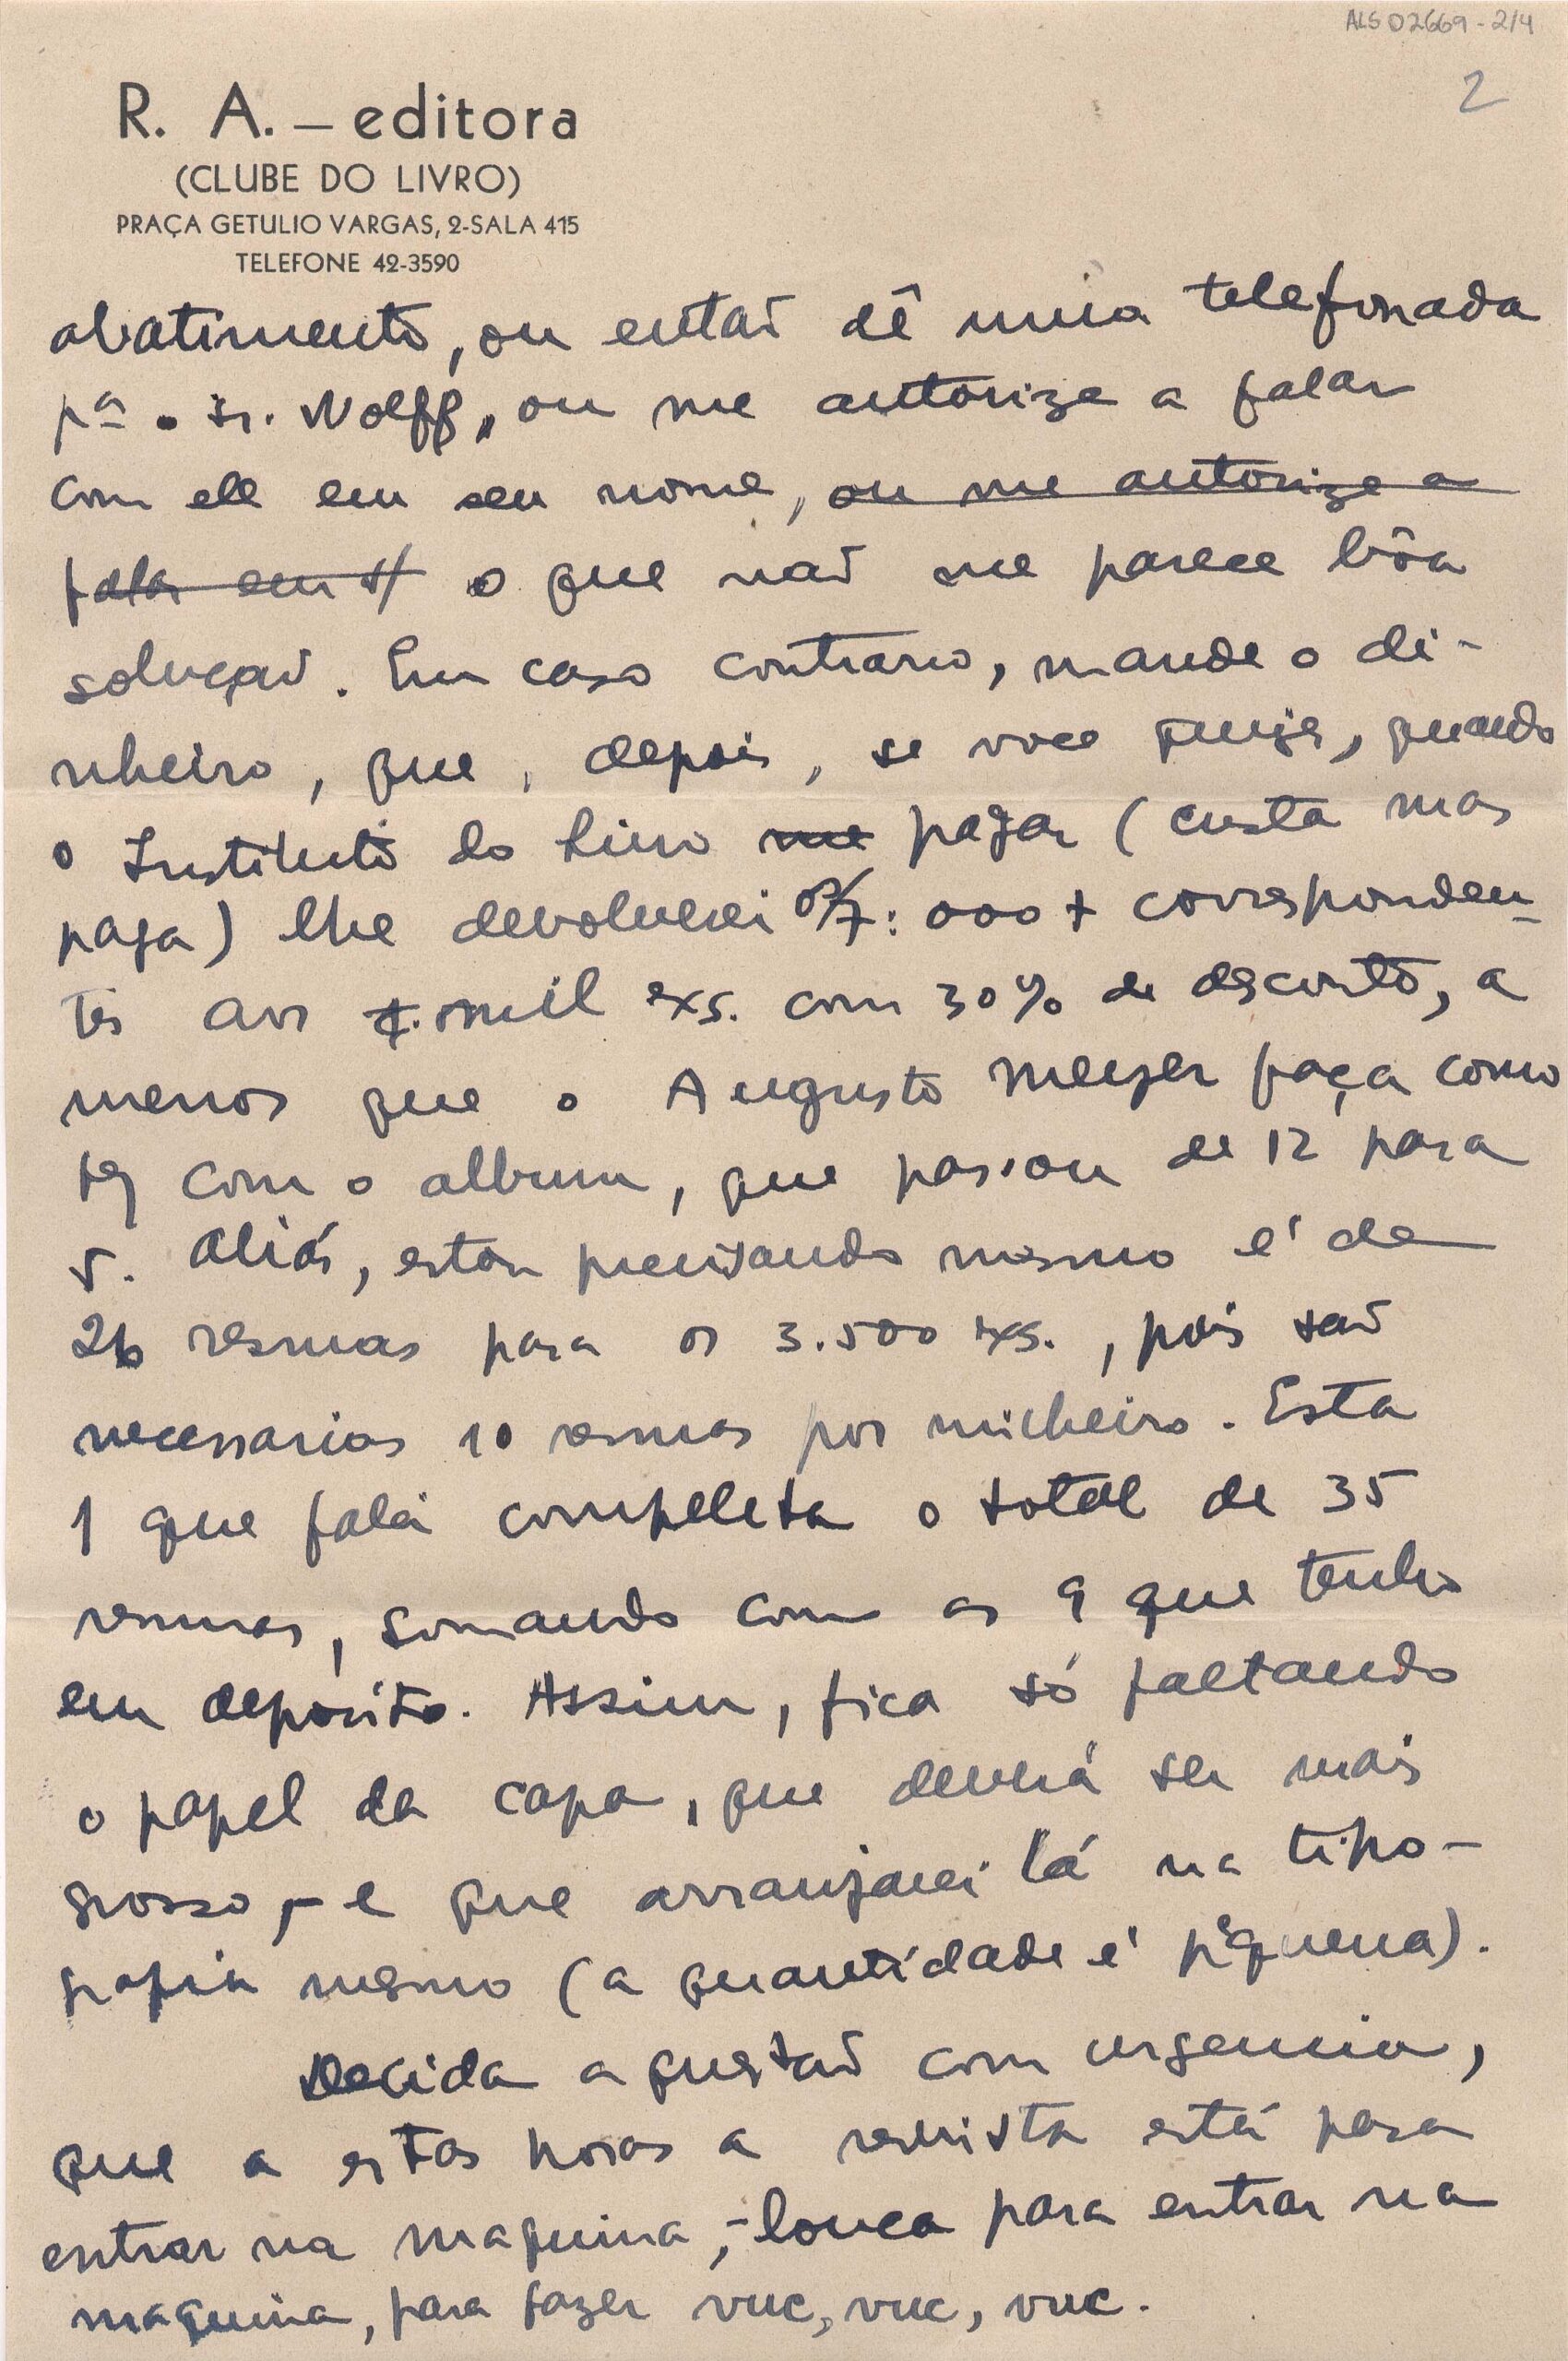 ALS 02669 - 2/4
2
R. A. — editora
(CLUBE DO LIVRO)
PRAÇA GETULIO VARGAS, 2-SALA 415
TELEFONE 42-3590
abatimento, ou entaõ dê uma telefonada
pª o sr. Wolff, ou me autorize a falar
com ele em seu nome, ou me autorize a
falar em s/ o que naõ me parece bôa
soluçaõ. Em caso contrario, mande o di-
nheiro, que, depois, se voce quizer, quando
o Instituto do Livro me pagar (custa mas
paga) lhe devolverei os 7:000+ corresponden-
tes aos mil exs. com 30% de desconto, a
menos que o Augusto Meyer faça como
fez com o album, que passou de 12 para
5. Aliás, estou precisando mesmo é de
26 resmas para os 3.500 exs., pois saõ
necessarias 10 resmas por milheiro. Esta
1 que falei completa o total de 35
resmas, somando com as 9 que tenho
em deposito. Assim, fica só faltando
o papel da capa, que deverá ser mais
grosso, - e que arranjarei lá na tipo-
grafia mesmo (a quantidade é pequena).
Decida a questaõ com urgencia,
que a estas horas a revista está para
entrar na maquina, - louca para entrar na
maquina, para fazer vuc, vuc, vuc.